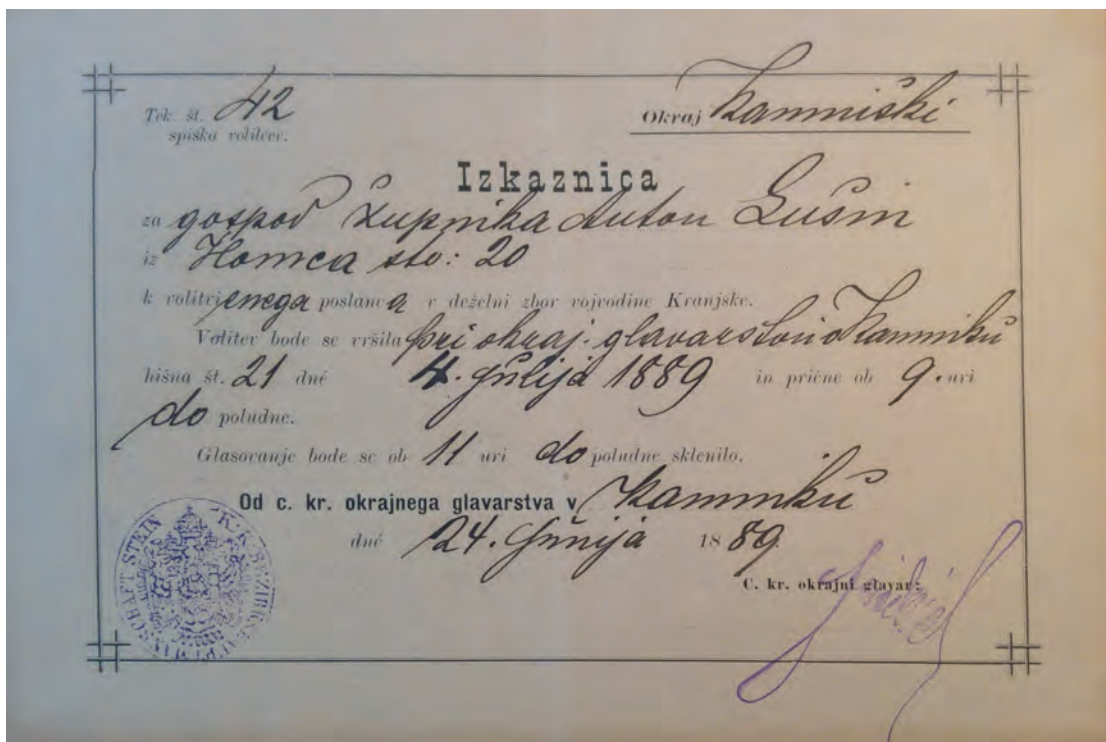 Tek. št. 42
spiska volilcev.
Okraj Kamniški
Izkaznica
za gospod župnika Anton Lušin
iz Homca štv: 20
k volitvi enega poslanca v deželni zbor vojvodine Kranjske.
Volitev bode se vršila pri okraj. glavarstvu v Kamniku
hišna št. 21 dné 4. julija 1889 in prične ob 9. uri
do poludne.
Glasovanje bode se ob 11 uri do poludne sklenilo.
Od c. kr. okrajnega glavarstva v Kamniku
dné 24. junija 1889.
C. kr. okrajni glavar:
K. K. BEZIRKSHAUPTMANNSCHAFT STEIN